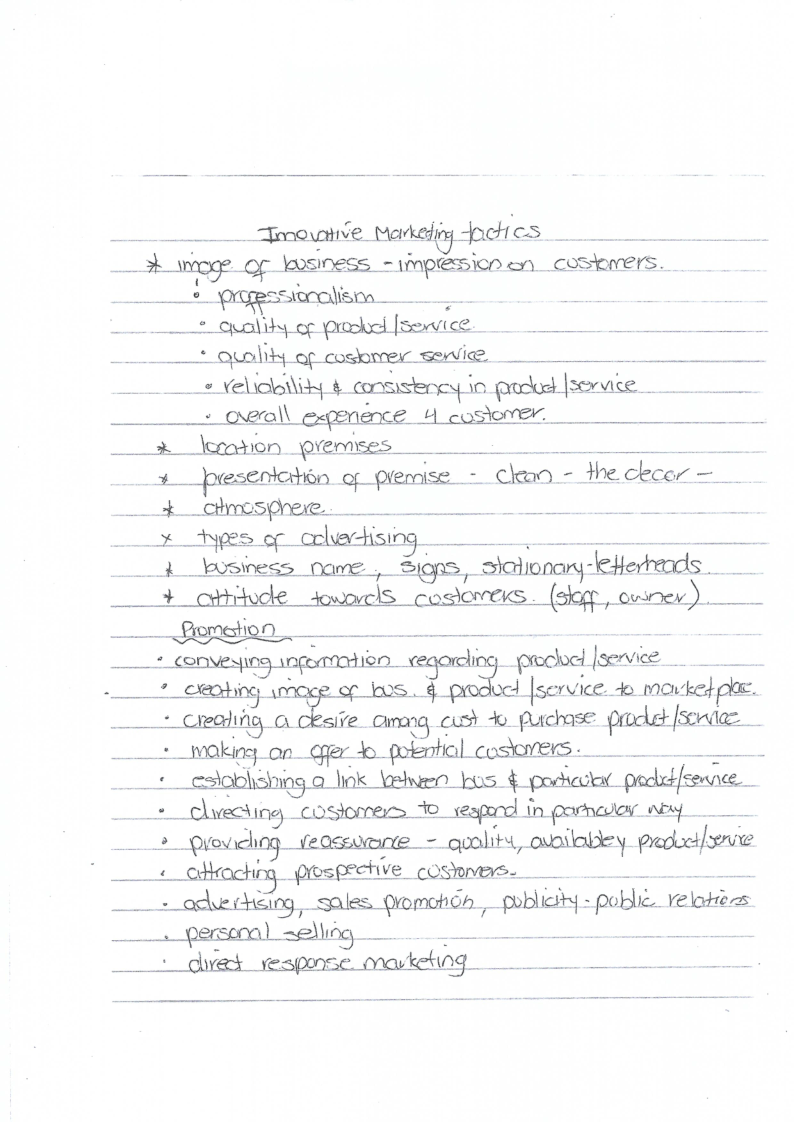 Imovative Marketing tactics
* image of business - impression on customers.
• professionalism
• quality of product/service.
• quality of customer service
• reliability & consistency in product/service
• overall experience 4 customer.
* location premises
* presentation of premise - clean - the decor -
* atmosphere.
x types of advertising
* business name, signs, stationary-letterheads
* attitude towards customers. (staff, owner)
Promotion
• conveying information regarding product/service
• creating image of bus. & product/service to marketplac.
• creating a desire among cust to purchase product/service
• making an offer to potential customers.
• establishing a link between bus & particular product/service
• directing customers to respond in particular way
• providing reassurance - quality, availabley product/service
• attracting prospective customers.
• advertising, sales promotion, publicity-public relations
• personal selling
• direct response marketing